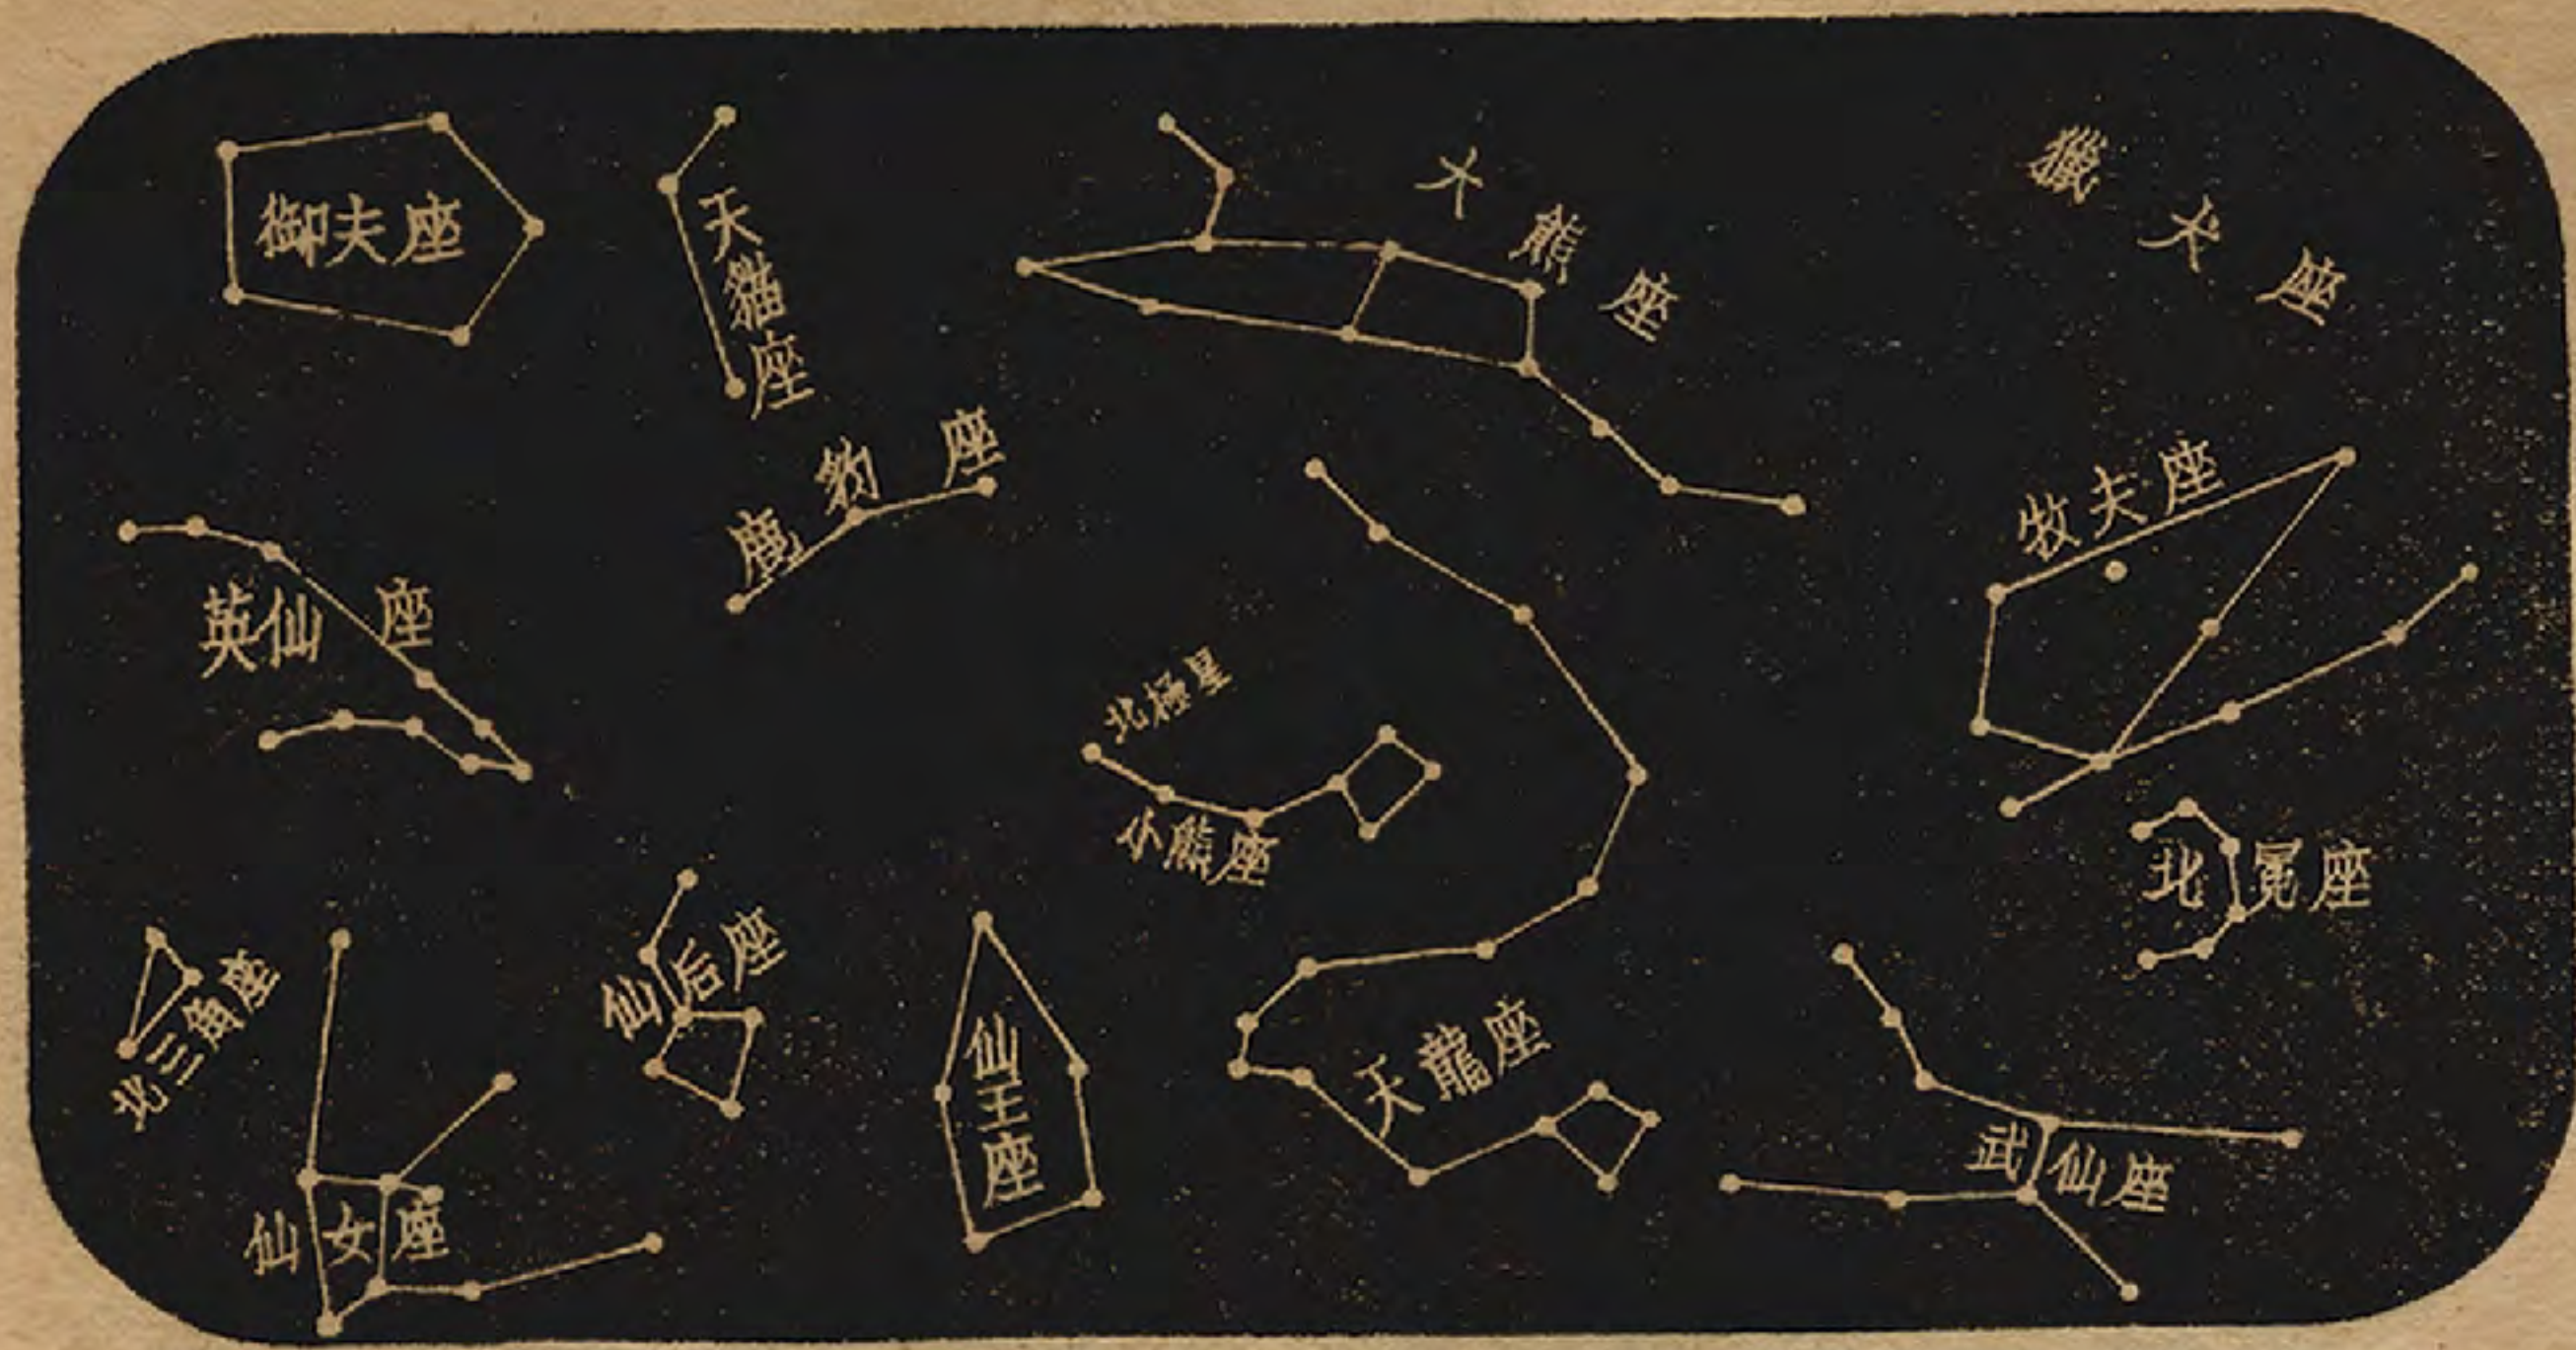 御夫座
天貓座
大熊座
獵犬座
鹿豹座
牧夫座
英仙座
北極星
小熊座
北冕座
北三角座
仙后座
仙王座
天龍座
武仙座
仙女座